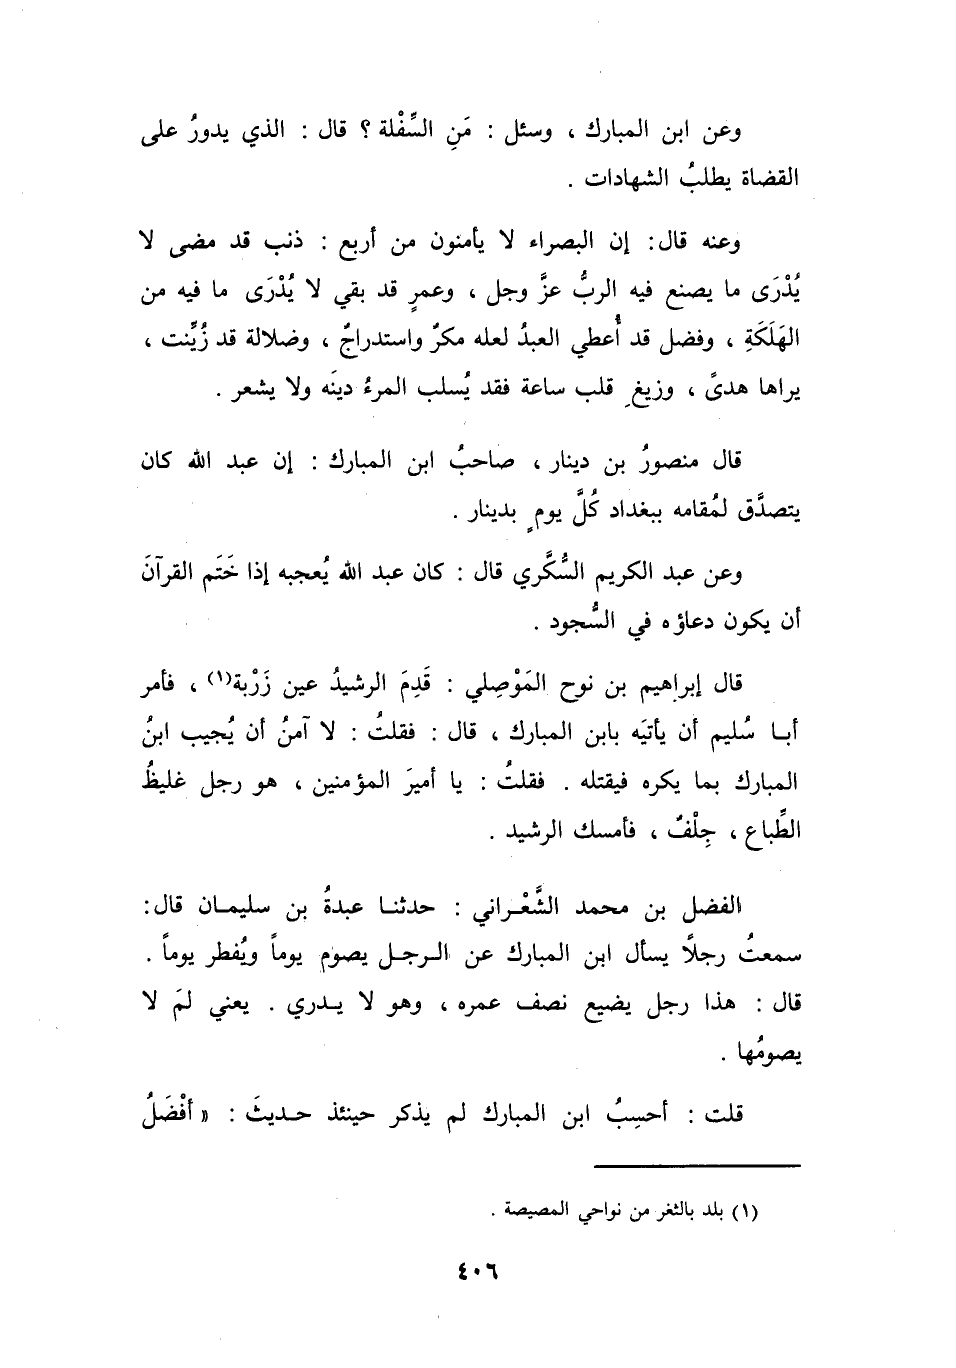 وعن ابن المبارك ، وسئل : مَنِ السِّفْلة ؟ قال : الذي يدورُ على
القضاة يطلبُ الشهادات .
وعنه قال: إن البصراء لا يأمنون من أربع : ذنب قد مضى لا
يُدْرَى ما يصنع فيه الربُّ عزَّ وجل ، وعمرٍ قد بقي لا يُدْرَى ما فيه من
الهَلَكَةِ ، وفضل قد أُعطي العبدُ لعله مكرٌ واستدراجٌ ، وضلالة قد زُيِّنت ،
يراها هدىً ، وزيغِ قلب ساعة فقد يُسلب المرءُ دينَه ولا يشعر .
قال منصورُ بن دينار ، صاحبُ ابن المبارك : إن عبد الله كان
يتصدَّق لمُقامه ببغداد كُلَّ يومٍ بدينار .
وعن عبد الكريم السُّكَّري قال : كان عبد الله يُعجبه إذا خَتَم القرآنَ
أن يكون دعاؤه في السُّجود .
قال إبراهيم بن نوح المَوْصِلي : قَدِمَ الرشيدُ عين زَرْبة(١) ، فأمر
أبا سُليم أن يأتيَه بابن المبارك ، قال : فقلتُ : لا آمنُ أن يُجيب ابنُ
المبارك بما يكره فيقتله . فقلتُ : يا أميرَ المؤمنين ، هو رجل غليظُ
الطِّباع ، جِلْفٌ ، فأمسك الرشيد .
الفضل بن محمد الشَّعْراني : حدثنا عبدةُ بن سليمان قال:
سمعتُ رجلاً يسأل ابن المبارك عن الرجل يصوم يوماً ويُفطر يوماً .
قال : هذا رجل يضيع نصف عمره ، وهو لا يدري . يعني لمَ لا
يصومُها .
قلت : أحسِبُ ابن المبارك لم يذكر حينئذ حديثَ : « أفْضَلُ
(١) بلد بالثغر من نواحي المصيصة .
٤٠٦